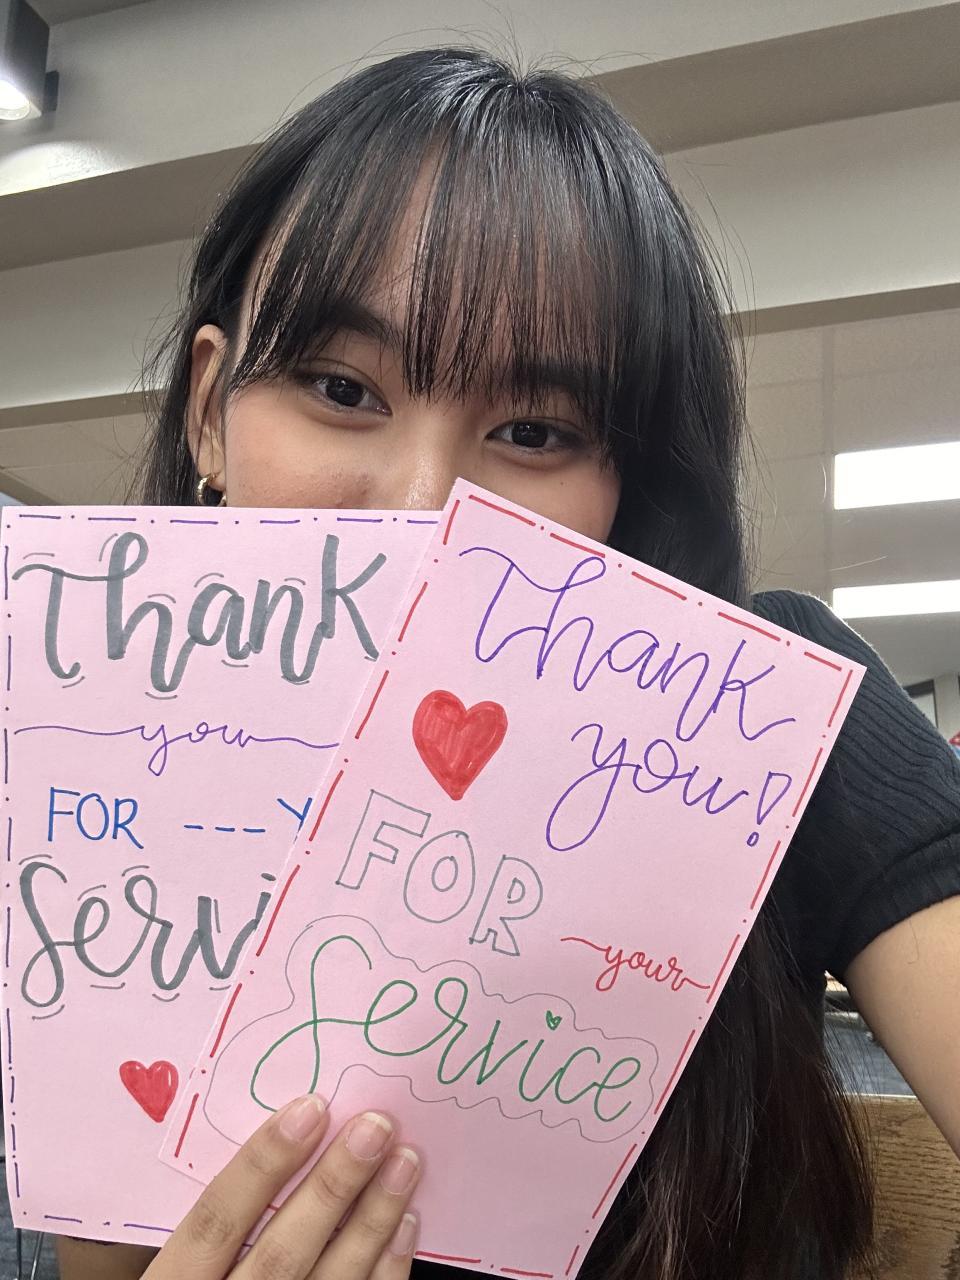 Thank
you
FOR ---Y
Servi
Thank
you!
FOR
your
Service